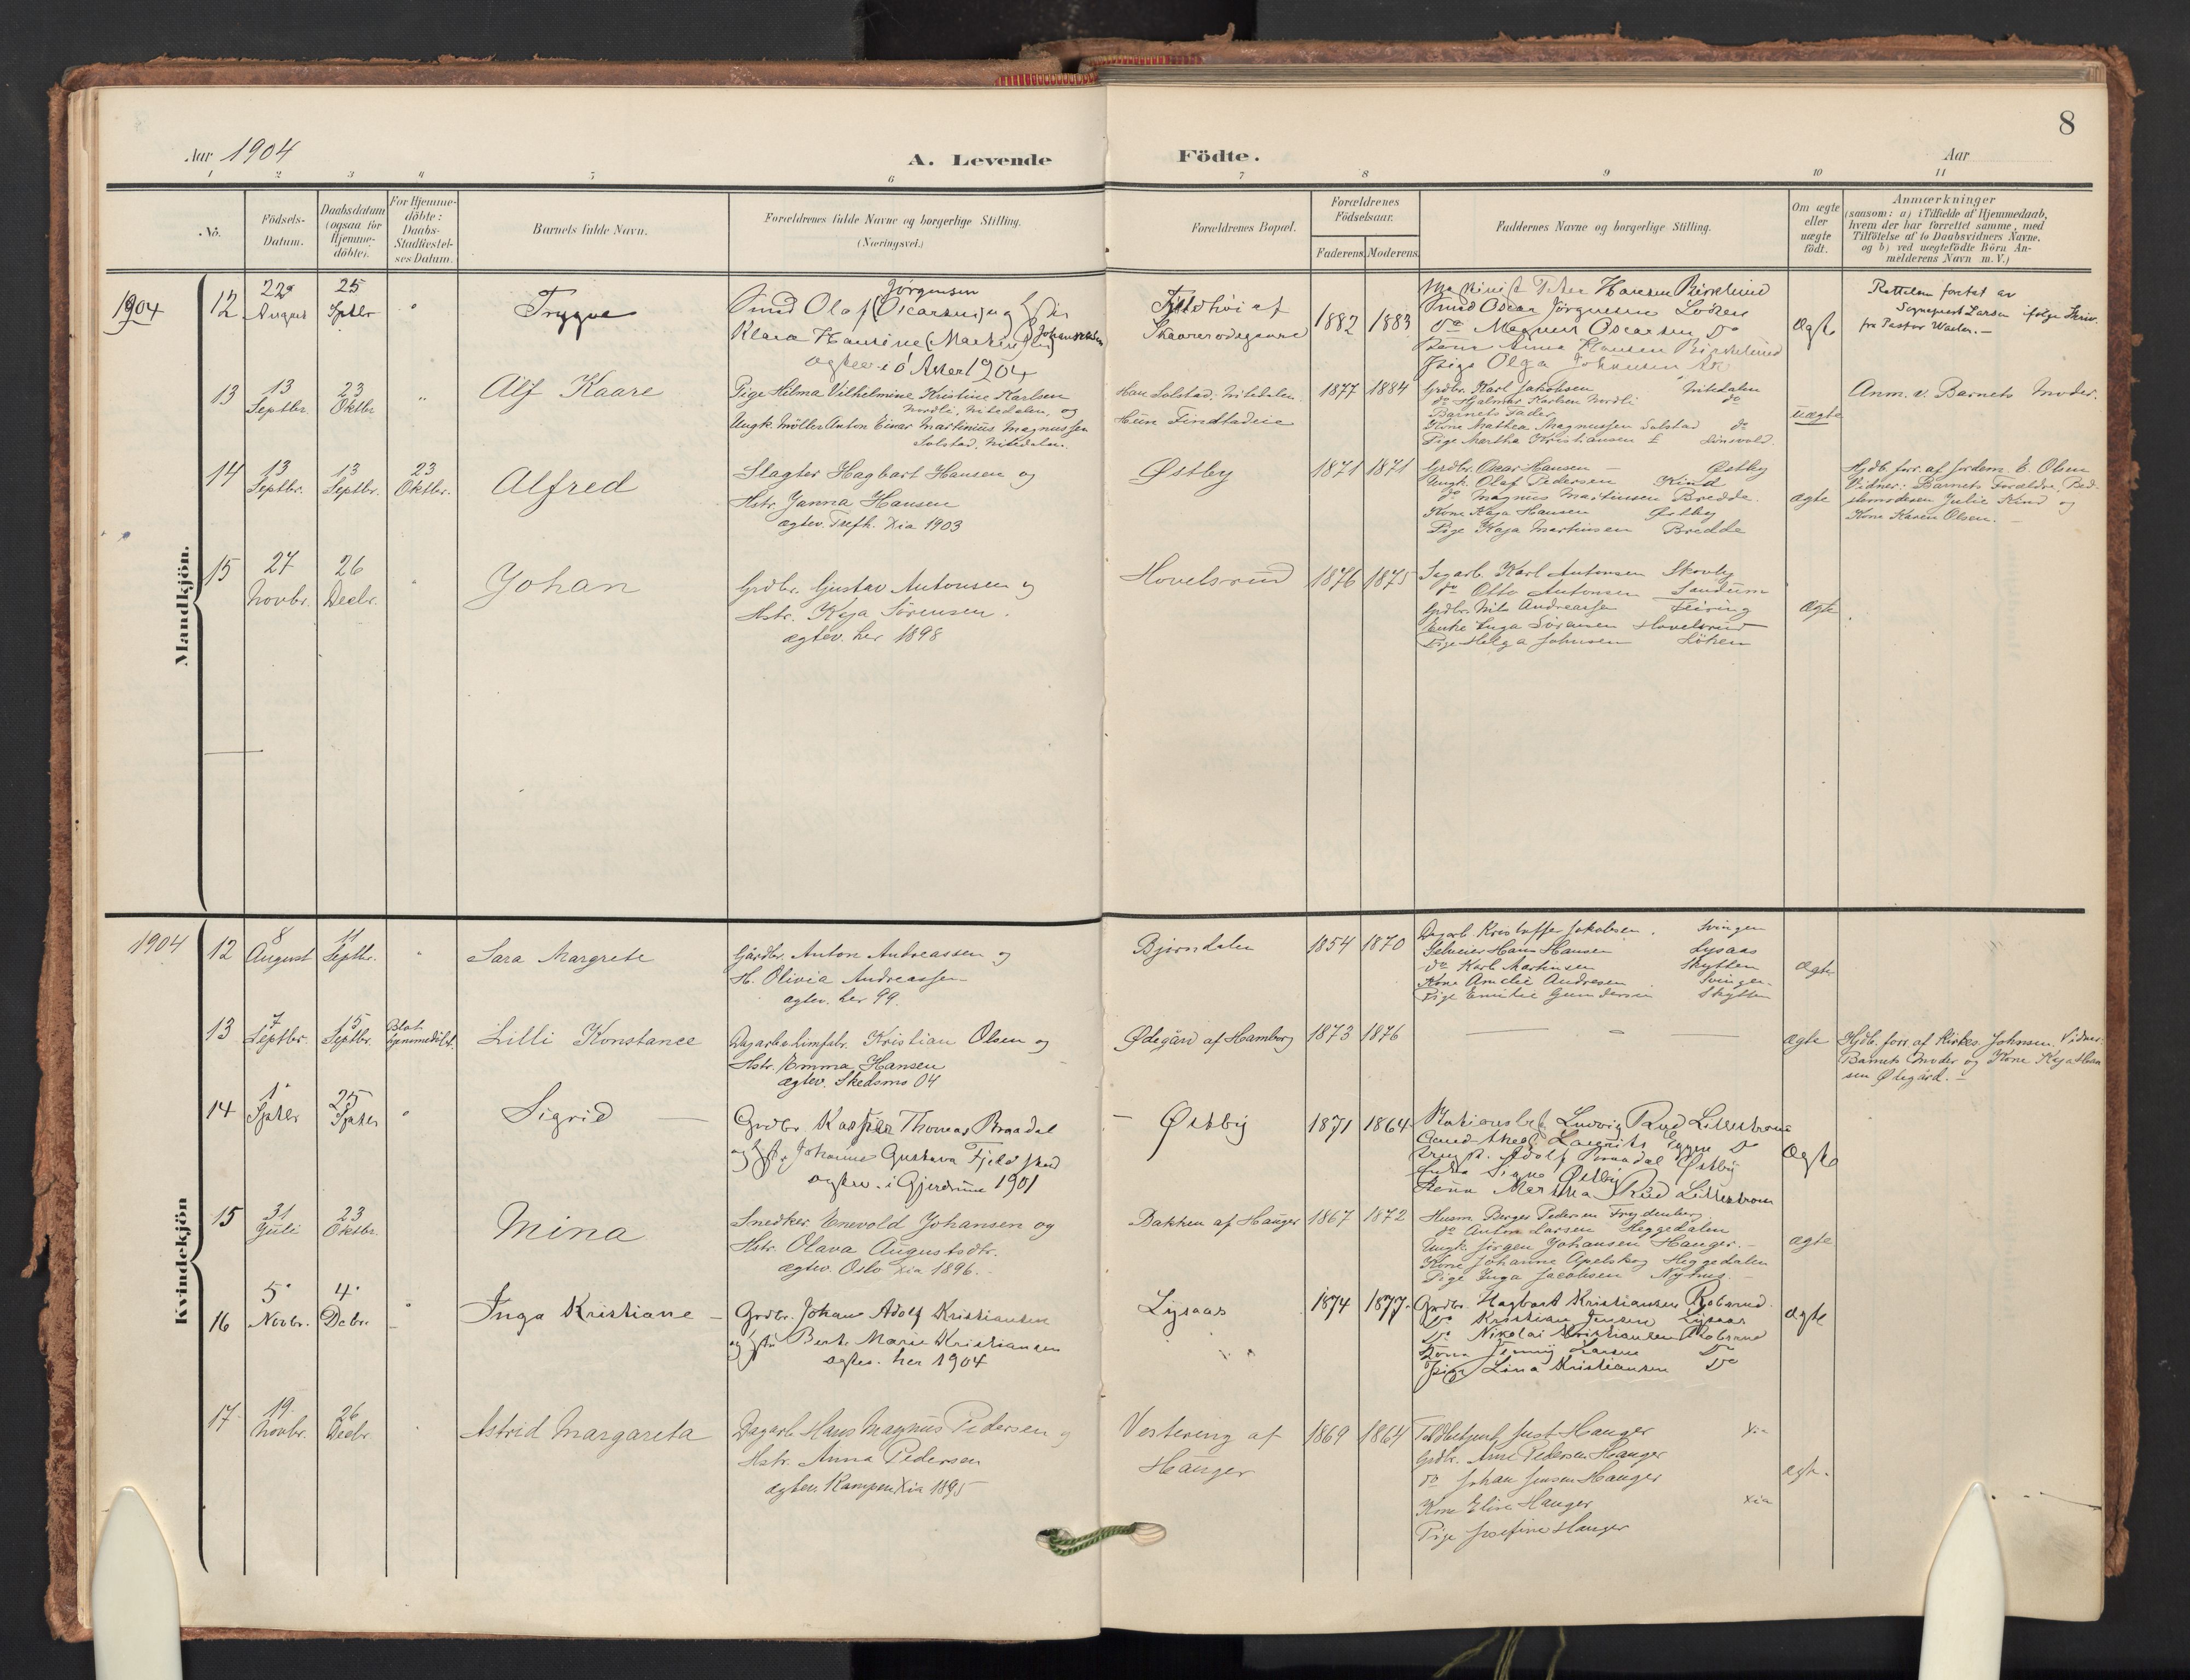 8
Aar 1904
A. Levende Födte.
Aar
1 2 3 4 5 6 7 8 9 10 11
No.
Födsels-Datum.
Daabsdatum (ogsaa for Hjemme-döbte).
For Hjemme-döbte: Daabs-Stadfæstel-ses Datum.
Barnets fulde Navn.
Forældrenes fulde Navne og borgerlige Stilling.
(Næringsvei.)
Forældrenes Bopæl.
Forældrenes Födselsaar.
Faderens. Moderens.
Faddernes Navne og borgerlige Stilling.
Om ægte eller uægte födt.
Anmærkninger
(saasom: a) i Tilfælde af Hjemmedaab,
hvem der har forrettet samme, med
Tilföielse af to Daabsvidners Navne,
og b) ved uægtefödte Börn An-
melderens Navn m. V.)
Mandkjön.
1904
12
22 August
25 Sptbr
Trygve
Jørgensen
Smed Olaf (Oscarsen) og Hstr
Klara Hansine (Martinsen) Johannessen
ægtev. i Ø Aker 1904
Fjeldhøi af
1882 1883
Maskinist Peter Hansen Birkelund
Smed Oscar Jørgensen
do Magnus Oscarsen do
Kone Anna Hansen Birkelund
Pige Olga Johansen
Ægte
Rettelsen foretat av
Sogneprest Larsen ifølge Skriv.
fra Pastor
13
13 Septbr.
23 Oktbr
"
Alf Kaare
Pige Hilma Vilhelmine Kristine Karlsen
Nordli, Nitedalen, og
Ungk. Möller Anton Einar Martinius Magnussen
Solstad, Nitedalen.
Han Solstad. Nitedalen
Hun Findstadeie
1877 1884
Grdbr. Karl Jakobsen Nitedalen
do Hjalmar Karlsen Nordli do
Barnets Fader
Kone Mathea Magnussen Solstad do
Pige Martha Kristiansen
uægte
Anm. v. Barnets Moder.
14
13 Septbr.
13 Septbr.
23 Oktbr.
Alfred
Slagter Hagbart Hansen og
Hstr. Janna Hansen
ægtev. Trefk. Xia 1903
Østby
1871 1871
Grdbr. Oscar Hansen – Østby
Ungk. Olaf Pedersen Kind
do Magnus Martinsen Bredde.
Kone Kaja Hansen Østby
Pige Kaja Martinsen Bredde
ægte
Hjdb. forr. af Jordem. E. Olsen
Vidner: Barnets Forældre, Bed-
stemoderen Julie Kind og
Kone Karen Olsen.
15
27 Novbr.
26 Decbr.
"
Johan
Grdbr. Gustav Antonsen og
Hstr. Kaja Sörensen.
ægtev. her 1898
Hovelsrud
1876 1875
Sagarb. Karl Antonsen Skovly
do Otto Antonsen Sandum
Grdbr. Nils Andreassen Fleiring
Enke Inga Sörensen Hovelsrud
Pige Helga Johnsen Löken
Ægte
Kvindekjön
1904
12
8 August
11 Septbr.
"
Sara Margrete
Gårdbr. Anton Andreassen og
H. Olivia Andreassen
ægtev. her 99.
Bjørndalen
1854 1870
Dagarb. Kristoffer Jakobsen. Svingen
Selveier Hans Hansen Lysaas
do Karl Martinsen Skytten
Kone Amelie Andresen Svingen.
Pige Emilie Gundersen Skytten
Ægte
13
7 Septbr.
15 Septbr.
Blot hjemmedöbt.
Lilli Konstance
Dagarb. Limfabr. Kristian Olsen og
Hstr. Emma Hansen
ægtev. Skedsmo 04
Ødegård af Hamborg
1873 1876
ægte
Hjdb. forr. af Kirkes. Johnsen. Vidner:
Barnets Moder og Kone Kaja Han-
sen Ødegård. –
14
1 Sptbr
25 Sptbr
"
Sigrid
Grdbr. Kasper Thomas Braadal
og Hstr. Johanne Gustava Fjeldstad
ægtev. i Gjerdrum 1901
Østby
1871 1864
Stationsbetj. Ludvig Rud Lillestrøm
Ungk. Adolf Braadal Østby
Signe Østby
Kone Martha Rud Lillestrøm
Ægte
15
31 Juli
23 Oktbr.
Mina
Snedker Enevold Johansen og
Hstr. Olava Augustsdtr.
ægtev. Oslo Xia 1896.
Bakken af Hauger
1867 1872
Husm. Berger Pedersen Frydenberg
do Anton Larsen Heggedalen
Ungk. Jörgen Johansen Hauger.
Kone Johanne Apelskog Heggedalen
Pige Inga Jacobsen Nyhus.
ægte
16
5 Novbr.
4 Dcbr.
"
Inga Kristiane
Grdbr. Johan Adolf Kristiansen
og Hstr Berte Marie Kristiansen
ægtev. her 1904
Lysaas
1874 1877.
Grdbr. Hagbart Kristiansen Robsrud.
do Kristian Jensen Lysaas
do Nikolai Kristiansen Robsrud
Kone Jenny Larsen do
Pige Lina Kristiansen do
ægte
17
19 Novbr.
26 Decbr.
Astrid Margareta
Dagarb. Hans Magnus Pedersen og
Hstr. Anna Pedersen
ægtev. Kampen Xia 1895
Vestereng af
Hauger
1869 1864
Toldbetjent Just Hauger Xia
Grdbr. Arne Pedersen Hauger
do Johan Jensen Hauger
Kone Elise Hauger Xia
Pige Josefine Hauger
ægte.